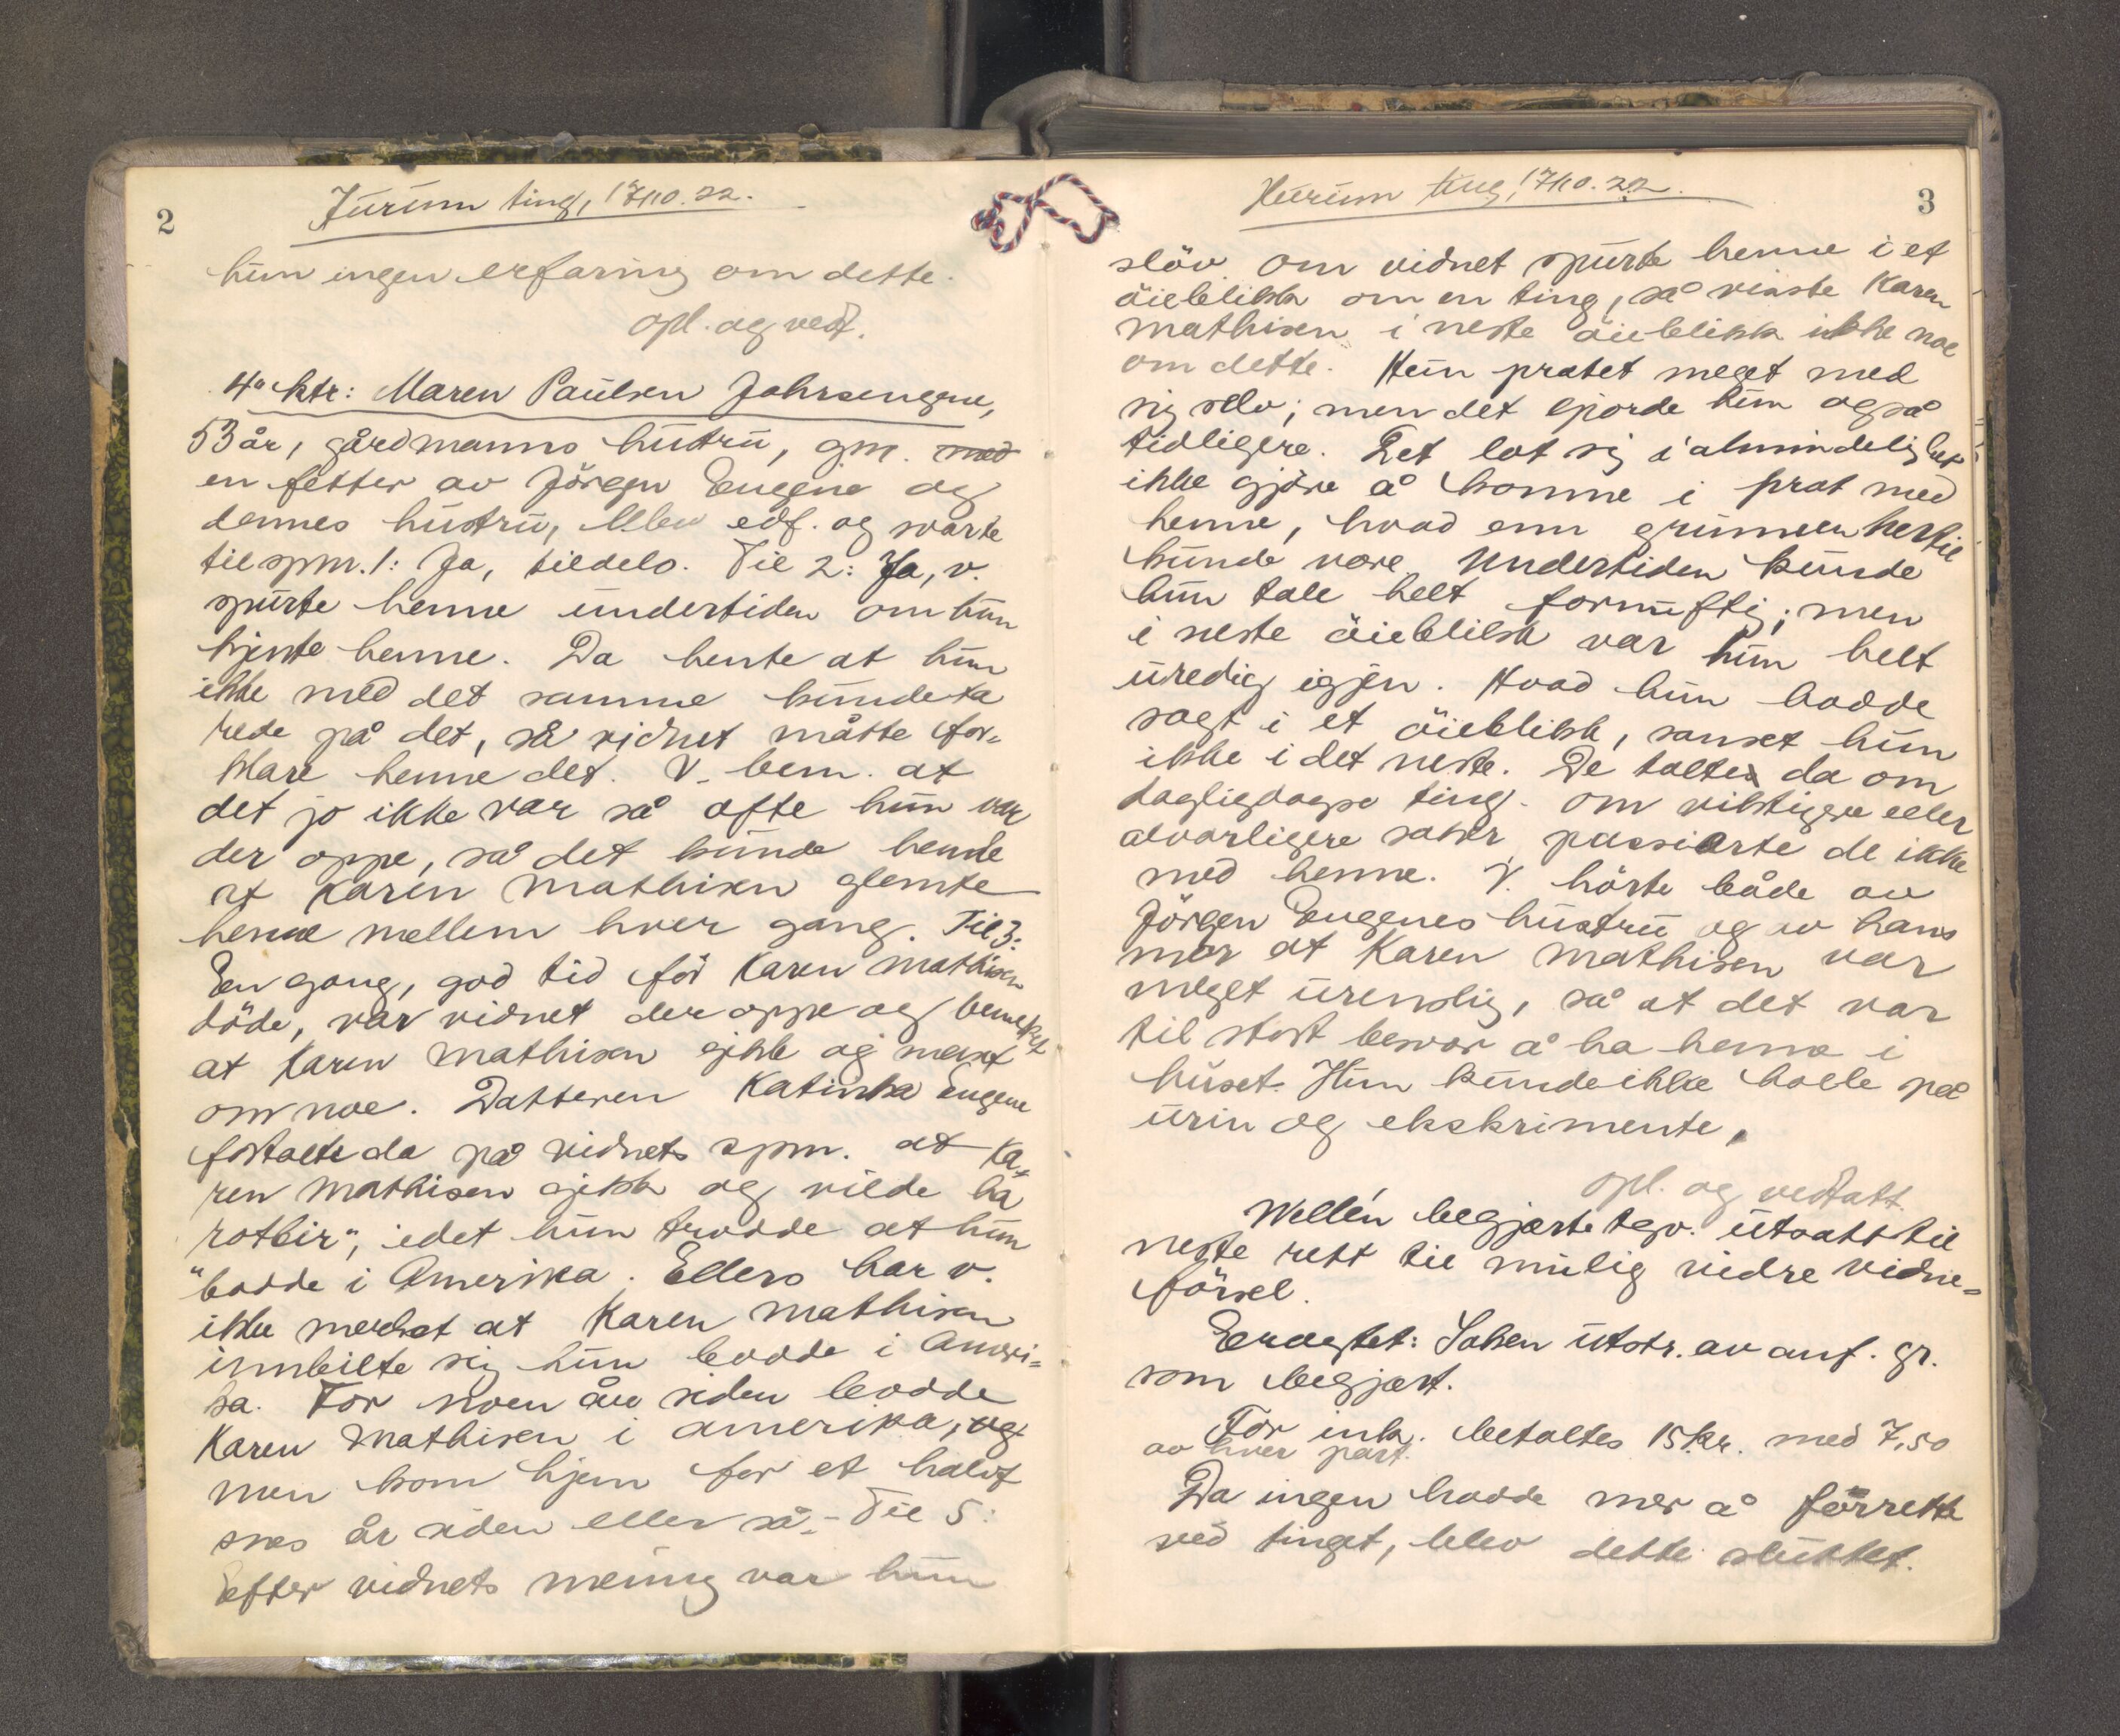 2
Hurum ting, 17/10.22.
hun ingen erfaring om dette.
opl. og vedt.
4° ktr: Maren Paulsen Johrsengene,
53 år, gårdmanns hustru, gm. med
en fetter av Jörgen Eugene og
dennes hustru, blev edf. og svarte
til spm. 1: Ja, tildels. Til 2: Ja, v.
spurte henne undertiden om hun
kjente henne. Da hente at hun
ikke med det samme kunde ta
rede på det, så vidnet måtte for-
klare henne det. V. bem. at
det jo ikke var så ofte hun var
der oppe, så det kunde hende
at Karen Mathisen glemte
henne mellem hver gang. Til 3:
En gang, god tid för Karen Mathisen
döde, var vidnet der oppe og bemerket
at Karen Mathisen gikk og maset
om noe. Datteren Katinka Eugene
fortalte da på vidnets spm. at Ka-
ren Mathisen gikk og vilde ha
"rotbir", idet hun trodde at hun
bodde i Amerika. Ellers har v.
ikke merket at Karen Mathisen
innbilte sig hun bodde i Ameri-
ka. For noen år siden bodde
Karen Mathisen i Amerika, og
men kom hjem for et halvt
snes år siden eller så. - Til 5:
Efter vidnets mening var hun
Hurum ting, 17/10.22.
3
slöv. Om vidnet spurte henne i et
öieblikk om en ting, så visste Karen
Mathisen i neste öieblikk ikke noe
om dette. Hun pratet meget med
sig selv; men det gjorde hun også
tidligere. Det lot sig i almindelighet
ikke gjöre å komme i prat med
henne, hvad enn grunnen hertil
kunde være. Undertiden kunde
hun tale helt fornuftig; men
i neste öieblikk var hun helt
uredig igjen. Hvad hun hadde
sagt i et öieblikk, sanset hun
ikke i det neste. De talte da om
dagligdagse ting. Om viktigere eller
alvorligere saker passiarte de ikke
med henne. V. hörte både av
Jörgen Eugenes hustru og av hans
mor at Karen Mathisen var
meget urenslig, så at det var
til stort besvær å ha henne i
huset. Hun kunde ikke holle på
urin og ekskrimente.
opl. og vedtatt.
Wellén begjærte tgv. utsatt til
neste rett til mulig vidre vidne-
försel.
Eragtet: Saken utstr. av anf. gr.
som begjært.
For ink. betaltes 15 kr. med 7,50
av hver part.
Da ingen hadde mer å forrette
ved tinget, blev dette sluttet.